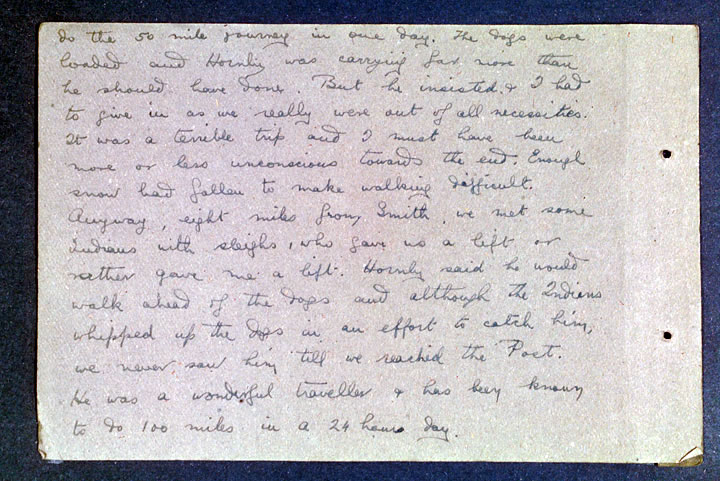 do the 50 mile journey in one day. The dogs were
loaded and Hornby was carrying far more than
he should have done. But he insisted & I had
to give in as we really were out of all necessities.
It was a terrible trip and I must have been
more or less unconscious towards the end. Enough
snow had fallen to make walking difficult.
Anyway, eight miles from Smith, we met some
Indians with sleighs, who gave us a lift or
rather gave me a lift. Hornby said he would
walk ahead of the dogs and although the Indians
whipped up the dogs in an effort to catch him,
we never saw him till we reached the Post.
He was a wonderful traveller & has been known
to do 100 miles in a 24 hour day.